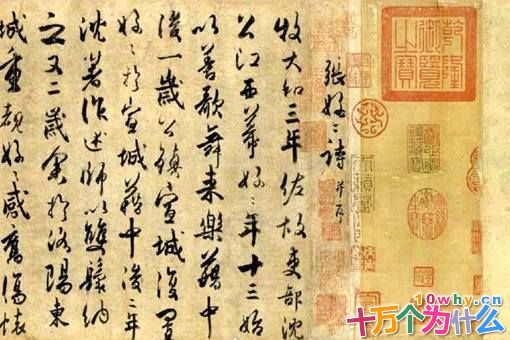 乾隆御覽之寶
張好〻詩 并序
牧大和三年佐故吏部沈
公江西幕好〻年十三始
以善歌舞來樂籍中
後一歲公鎮宣城復置
好〻於宣城籍中後二年
沈著作述師以雙鬟納
之又二歲余於洛陽東
城重覩好〻感舊傷懷
10why.cn
十万个为什么